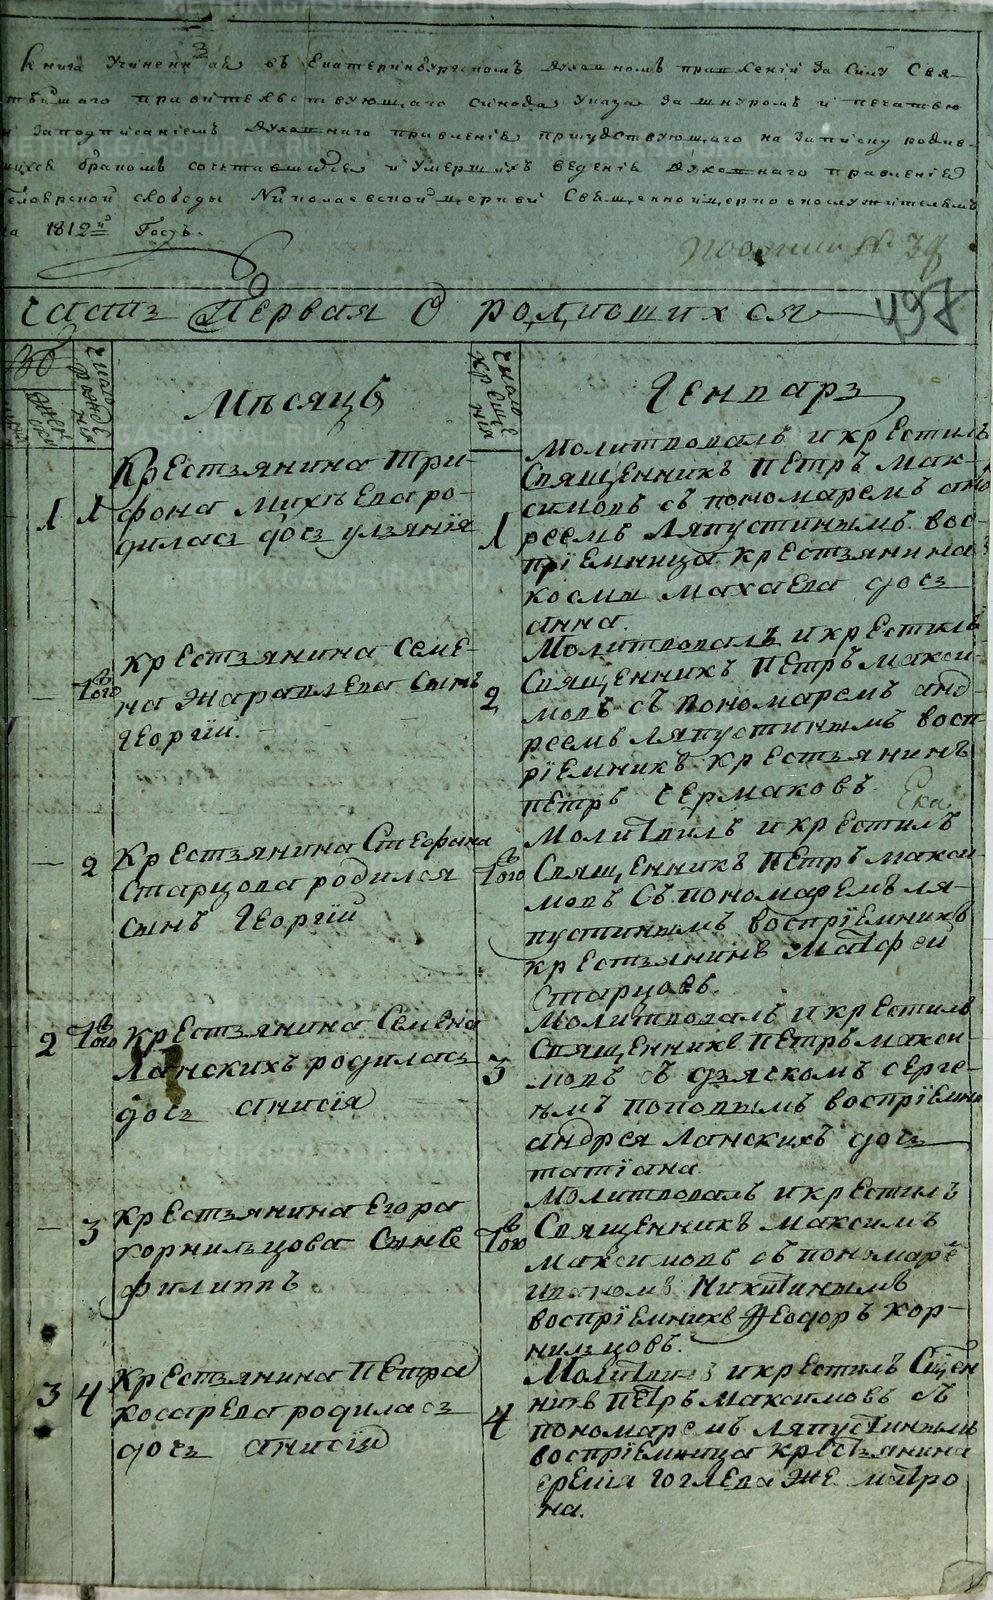 Книга Учиненная въ Екатеринбургскомъ духовномъ правленіи За Силу Свя-
тѣйшаго правительствующаго синода Указа За шнуромъ и печатью
и Заподписаніемъ духовнаго правленія присудствующаго на Записку родив-
шихся бракомъ сочетавшихся и умершихъ веденія духовнаго правленія
слободы Николаевской церкви Священноицерковнослужителямъ
на 1812й Годъ.
498
Часть Первая О родившихся
число рожденія
Мѣсяцъ
число крещенія
Генварь
1
1
Крестьянина Три-
фона Михѣева ро-
дилась дочь ульянія
1
Молитвовалъ и крестилъ
Священникъ Петръ Мак-
симовъ съ пономаремъ анд
реемъ Ляпустинымъ вос-
пріемница крестьянина
космы махаева дочь
анна.
1ого
Крестьянина Семе-
на Журавлева сынъ
Георгій.
2
Молитвовалъ и крестилъ
Священникъ Петръ Макси-
мовъ съ пономаремъ анд-
реемъ Ляпустинымъ восп-
ріемникъ крестьянинъ
петръ чермаковъ.
2
Крестьянина Стефана
Старцова родился
сынъ Георгій
1ого
Молитвилъ и крестилъ
Священникъ Петръ Макси-
мовъ Съ пономаремъ ля-
пустинымъ воспріемникъ
крестьянинъ Матфей
Старцовъ.
2
1ого
Крестьянина Семена
Ланскихъ родилась
дочь анисія
3
Молитвовалъ и крестилъ
Священникъ Петръ Макси-
мовъ съ дьяскомъ серге-
емъ поповымъ воспріемни
андрея Ланскихъ дочь
татіана.
3
Крестьянина Егора
корнильцова Сынъ
филиппъ
1ого
Молитвовалъ и крестилъ
Священникъ Максимъ
Максимовъ съ пономарё
иваномъ Никитинымъ
воспріемникъ Феодоръ кор-
нильцовъ.
3
4
Крестьянина Петра
косарева родилась
дочь анисія
4
Молитвилъ и крестилъ Сщен
никъ Петръ Максимовъ съ
пономаремъ ляпустинымъ
воспріемница крестьянина
еремія гоглева же матро
на.